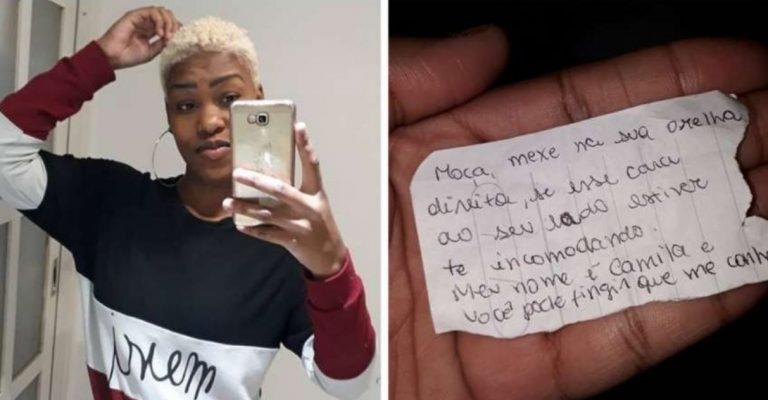 jovem
Moça, mexe na sua orelha
direita, se esse cara
ao seu lado estiver
te incomodando.
Meu nome é Camila e
você pode fingir que me conhe